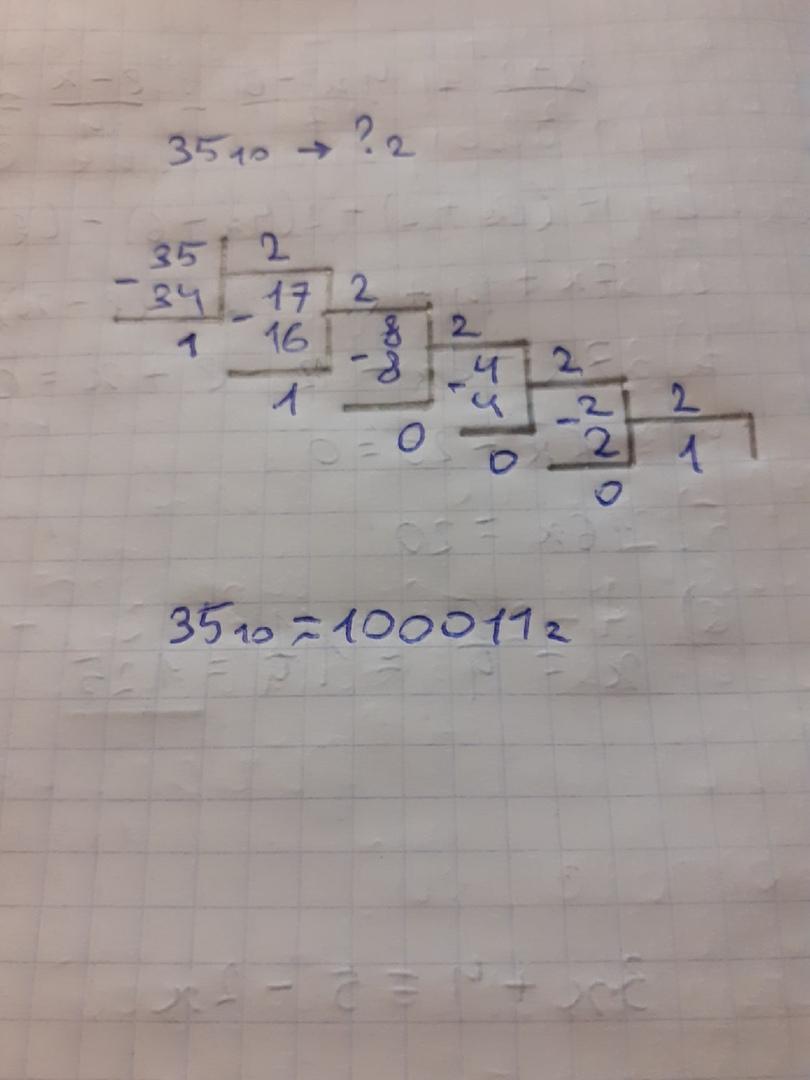 35₁₀ → ?₂
-35 2
34 -17 2
1 16 -8 2
1 8 -4 2
0 4 -2 2
0 2 1
0
35₁₀ = 100011₂